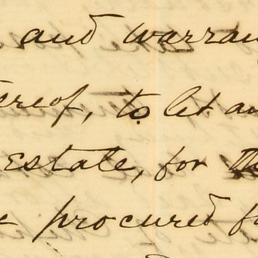 and warran
ereof, to let an
Estate, for the
procured fo